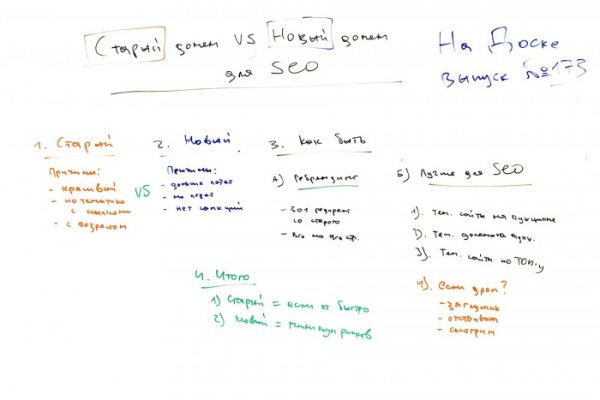 Старый домен VS Новый домен
для SEO
На Доске
выпуск №173
1. Старый
Причины:
- красивый
- по тематике
с ссылками
- с возрастом
VS
2. Новый
Причины:
- дольше
- не
- нет санкций
3. Как быть
А) Ребрендинг
- 301 редирект
со старого
- Все на
Б) Лучше для SEO
1). Тем. сайты на аукционе
2). Тем. домена аукц.
3). Тем. сайты по ТОП-у
4). если дроп?
- заглушка
- отстаивать
- смотрим
4. Итого
1) Старый = если ок быстро
2) Новый = минимум рисков